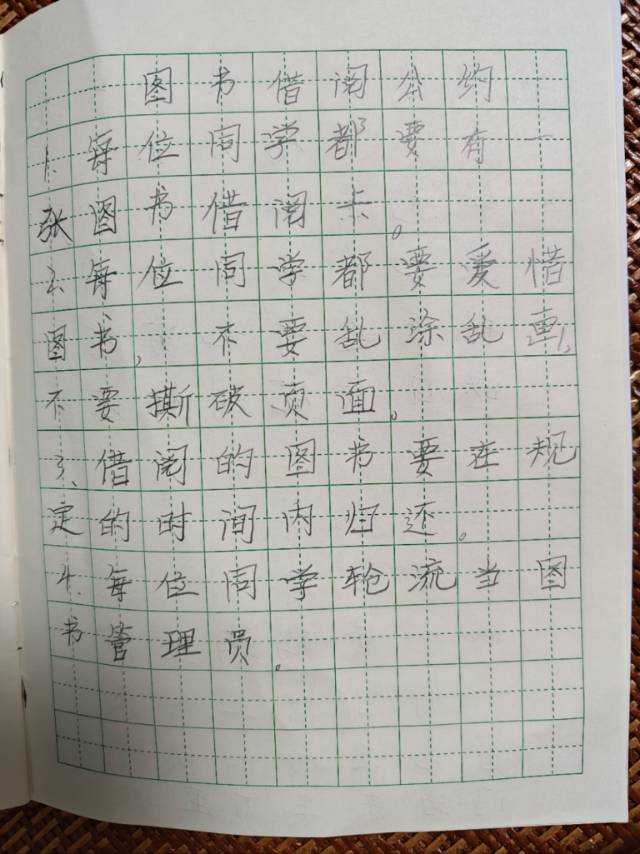 图书借阅公约
1、每位同学都要有一
张图书借阅卡。
2、每位同学都要爱惜
图书,不要乱涂乱画,
不要撕破页面。
3、借阅的图书要在规
定的时间内归还。
4、每位同学轮流当图
书管理员。